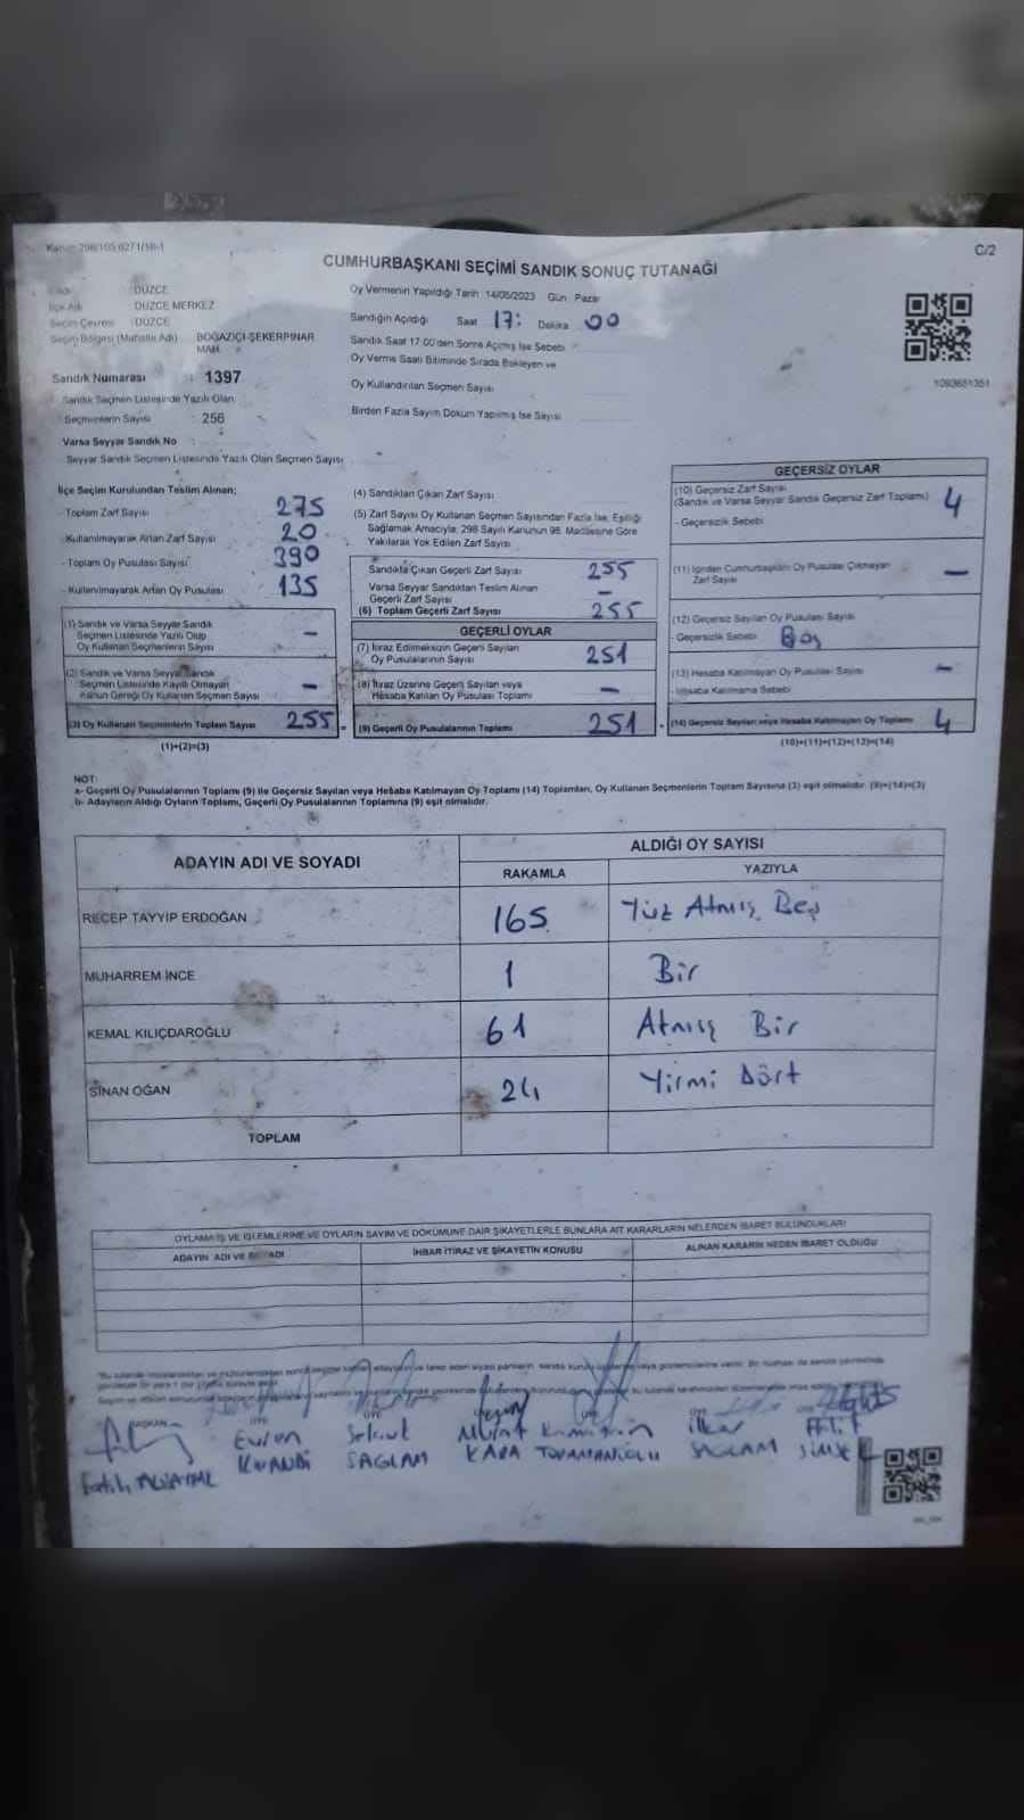 Kanun 298/105 6271/18-1
C/2
CUMHURBAŞKANI SEÇİMİ SANDIK SONUÇ TUTANAĞI
DÜZCE
DÜZCE MERKEZ
Seçim Çevresi : DÜZCE
Seçim Bölgesi (Mahalle Adı) BOĞAZİÇİ-ŞEKERPINAR MAH.
Sandık Numarası : 1397
Sandık Seçmen Listesinde Yazılı Olan
Seçmenlerin Sayısı : 256
Varsa Seyyar Sandık No :
Seyyar Sandık Seçmen Listesinde Yazılı Olan Seçmen Sayısı
Oy Vermenin Yapıldığı Tarih 14/05/2023 Gün Pazar
Sandığın Açıldığı Saat 17: Dakika 00
Sandık Saat 17.00'den Sonra Açılmış İse Sebebi
Oy Verme Saati Bitiminde Sırada Bekleyen ve
Oy Kullandırılan Seçmen Sayısı
Birden Fazla Sayım Döküm Yapılmış İse Sayısı
1093651351
İlçe Seçim Kurulundan Teslim Alınan;
- Toplam Zarf Sayısı 275
- Kullanılmayarak Artan Zarf Sayısı 20
- Toplam Oy Pusulası Sayısı 390
- Kullanılmayarak Artan Oy Pusulası 135
(1) Sandık ve Varsa Seyyar Sandık
Seçmen Listesinde Yazılı Olup
Oy Kullanan Seçmenlerin Sayısı –
(2) Sandık ve Varsa Seyyar Sandık
Seçmen Listesinde Kayıtlı Olmayan
Kanun Gereği Oy Kullanan Seçmen Sayısı –
(3) Oy Kullanan Seçmenlerin Toplam Sayısı 255
(1)+(2)=(3)
(4) Sandıktan Çıkan Zarf Sayısı
(5) Zarf Sayısı Oy Kullanan Seçmen Sayısından Fazla İse, Eşitliği
Sağlamak Amacıyla, 298 Sayılı Kanunun 98. Maddesine Göre
Yakılarak Yok Edilen Zarf Sayısı
Sandıkta Çıkan Geçerli Zarf Sayısı 255
Varsa Seyyar Sandıktan Teslim Alınan
Geçerli Zarf Sayısı –
(6) Toplam Geçerli Zarf Sayısı 255
GEÇERLİ OYLAR
(7) İtiraz Edilmeksizin Geçerli Sayılan
Oy Pusulalarının Sayısı 251
(8) İtiraz Üzerine Geçerli Sayılan veya
Hesaba Katılan Oy Pusulası Toplamı –
(9) Geçerli Oy Pusulalarının Toplamı 251
GEÇERSİZ OYLAR
(10) Geçersiz Zarf Sayısı
(Sandık ve Varsa Seyyar Sandık Geçersiz Zarf Toplamı) 4
- Geçersizlik Sebebi
(11) İçinden Cumhurbaşkanı Oy Pusulası Çıkmayan
Zarf Sayısı –
(12) Geçersiz Sayılan Oy Pusulası Sayısı
- Geçersizlik Sebebi Boş
(13) Hesaba Katılmayan Oy Pusulası Sayısı –
- Hesaba Katılmama Sebebi
(14) Geçersiz Sayılan veya Hesaba Katılmayan Oy Toplamı 4
(10)+(11)+(12)+(13)=(14)
NOT:
a- Geçerli Oy Pusulalarının Toplamı (9) ile Geçersiz Sayılan veya Hesaba Katılmayan Oy Toplamı (14) Toplamları, Oy Kullanan Seçmenlerin Toplam Sayısına (3) eşit olmalıdır. (9)+(14)=(3)
b- Adayların Aldığı Oyların Toplamı, Geçerli Oy Pusulalarının Toplamına (9) eşit olmalıdır.
ADAYIN ADI VE SOYADI
ALDIĞI OY SAYISI
RAKAMLA YAZIYLA
RECEP TAYYİP ERDOĞAN 165 Yüz Atmış Beş
MUHARREM İNCE 1 Bir
KEMAL KILIÇDAROĞLU 61 Atmış Bir
SİNAN OĞAN 24 Yirmi Dört
TOPLAM
OYLAMA İŞ VE İŞLEMLERİNE VE OYLARIN SAYIM VE DÖKÜMÜNE DAİR ŞİKAYETLERLE BUNLARA AİT KARARLARIN NELERDEN İBARET BULUNDUKLARI
ADAYIN ADI VE SOYADI
İHBAR İTİRAZ VE ŞİKAYETİN KONUSU
ALINAN KARARIN NEDEN İBARET OLDUĞU
BAŞKAN ÜYE ÜYE ÜYE ÜYE
Evren Selçuk Murat Kamuran İlker Arif
Fatih SAĞLAM KARA SAĞLAM